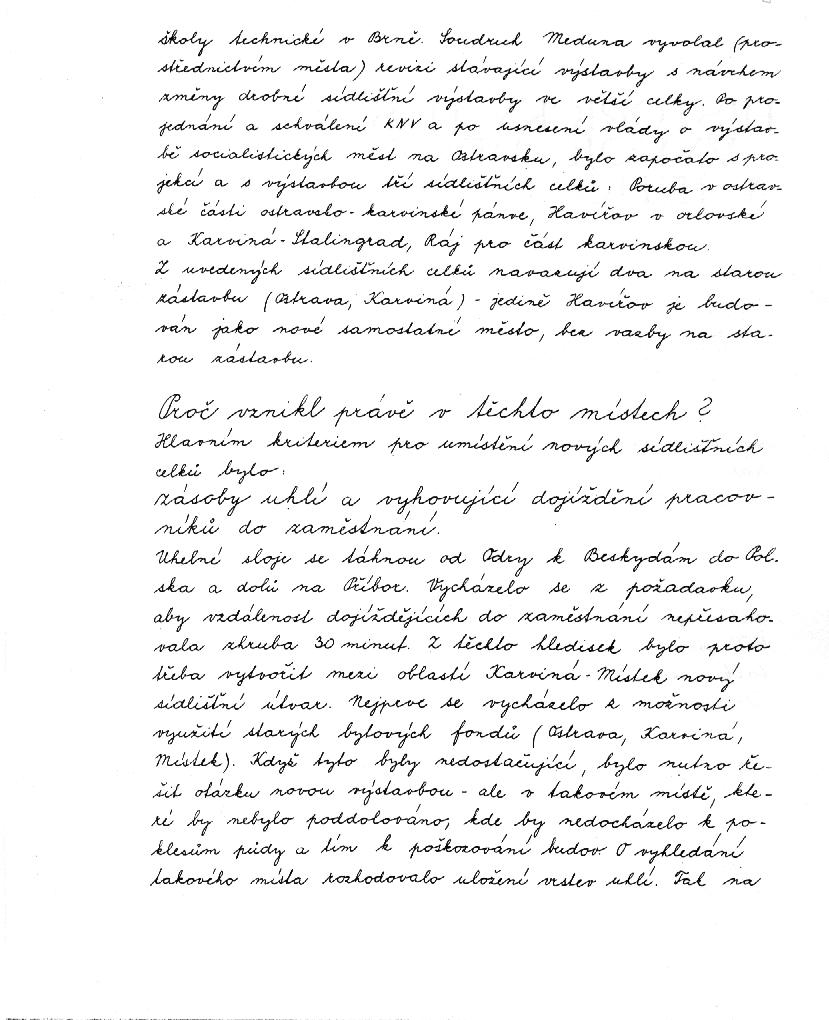 školy technické v Brně. Soudruh Meduna vyvolal (pro-
střednictvím města) revizi stávající výstavby s návrhem
změny drobné sídlištní výstavby ve větší celky. Po pro-
jednání a schválení KNV a po usnesení vlády o výstav-
bě socialistických měst na Ostravsku, bylo započato s pro-
jekcí a s výstavbou tří sídlištních celků: Poruba v ostrav-
ské části ostravsko-karvinské pánve, Havířov v orlovské
a Karviná-Stalingrad, Ráj pro část karvinskou.
Z uvedených sídlištních celků navazují dva na starou
zástavbu (Ostrava, Karviná) - jedině Havířov je budo-
ván jako nové samostatné město, bez vazby na sta-
rou zástavbu.
Proč vznikl právě v těchto místech?
Hlavním kriteriem pro umístění nových sídlištních
celků bylo:
zásoby uhlí a vyhovující dojíždění pracov-
níků do zaměstnání.
Uhelné sloje se táhnou od Odry k Beskydám do Pol-
ska a dolů na Příbor. Vycházelo se z požadavku,
aby vzdálenost dojíždějících do zaměstnání nepřesaho-
vala zhruba 30 minut. Z těchto hledisek bylo proto
třeba vytvořit mezi oblastí Karviná-Místek nový
sídlištní útvar. Nejprve se vycházelo z možnosti
využití starých bytových fondů (Ostrava, Karviná,
Místek). Když tyto byly nedostačující, bylo nutno ře-
šit otázku novou výstavbou - ale v takovém místě, kte-
ré by nebylo poddolováno, kde by nedocházelo k po-
klesům půdy a tím k poškozování budov. O vyhledání
takového místa rozhodovalo uložení vrstev uhlí. Tak na